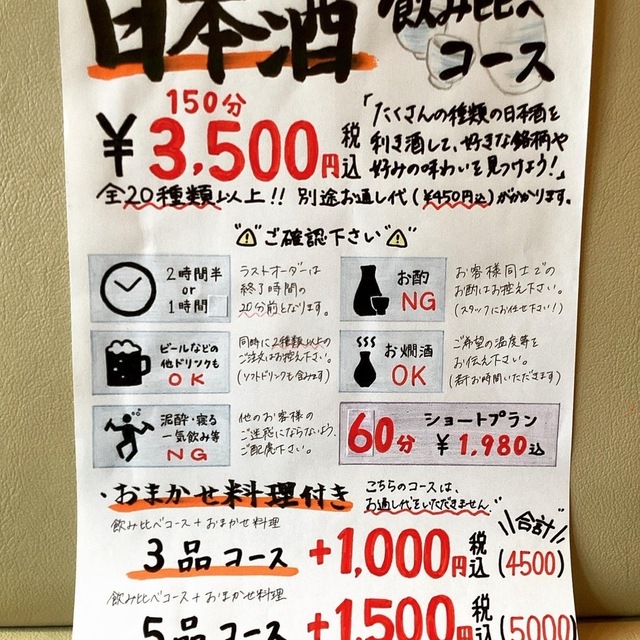 日本酒 飲み比べ
コース
150分
¥3,500円税込
「たくさんの種類の日本酒を
利き酒して、好きな銘柄や
好みの味わいを見つけよう!」
全20種類以上!! 別途お通し代(¥450円込)がかかります。
ご確認下さい
2時間半
or
1時間
ラストオーダーは
終了時間の
20分前となります。
お酌
NG
お客様同士での
お酌はお控え下さい。
(スタッフにお任せ下さい!)
ビールなどの
他ドリンクも
OK
同時に2種類以上の
ご注文はお控え下さい。
(ソフトドリンクも含みます)
お燗酒
OK
ご希望の温度等を
お伝え下さい。
(若干お時間いただきます)
泥酔・寝る
一気飲み等
NG
他のお客様の
ご迷惑にならないよう、
ご配慮下さい。
60分
ショートプラン
¥1,980込
・おまかせ料理付き
こちらのコースは、
お通し代をいただきません
飲み比べコース+おまかせ料理
3品コース +1,000円税込
合計
(4500)
飲み比べコース+おまかせ料理
5品コース +1,500円税込(5000)